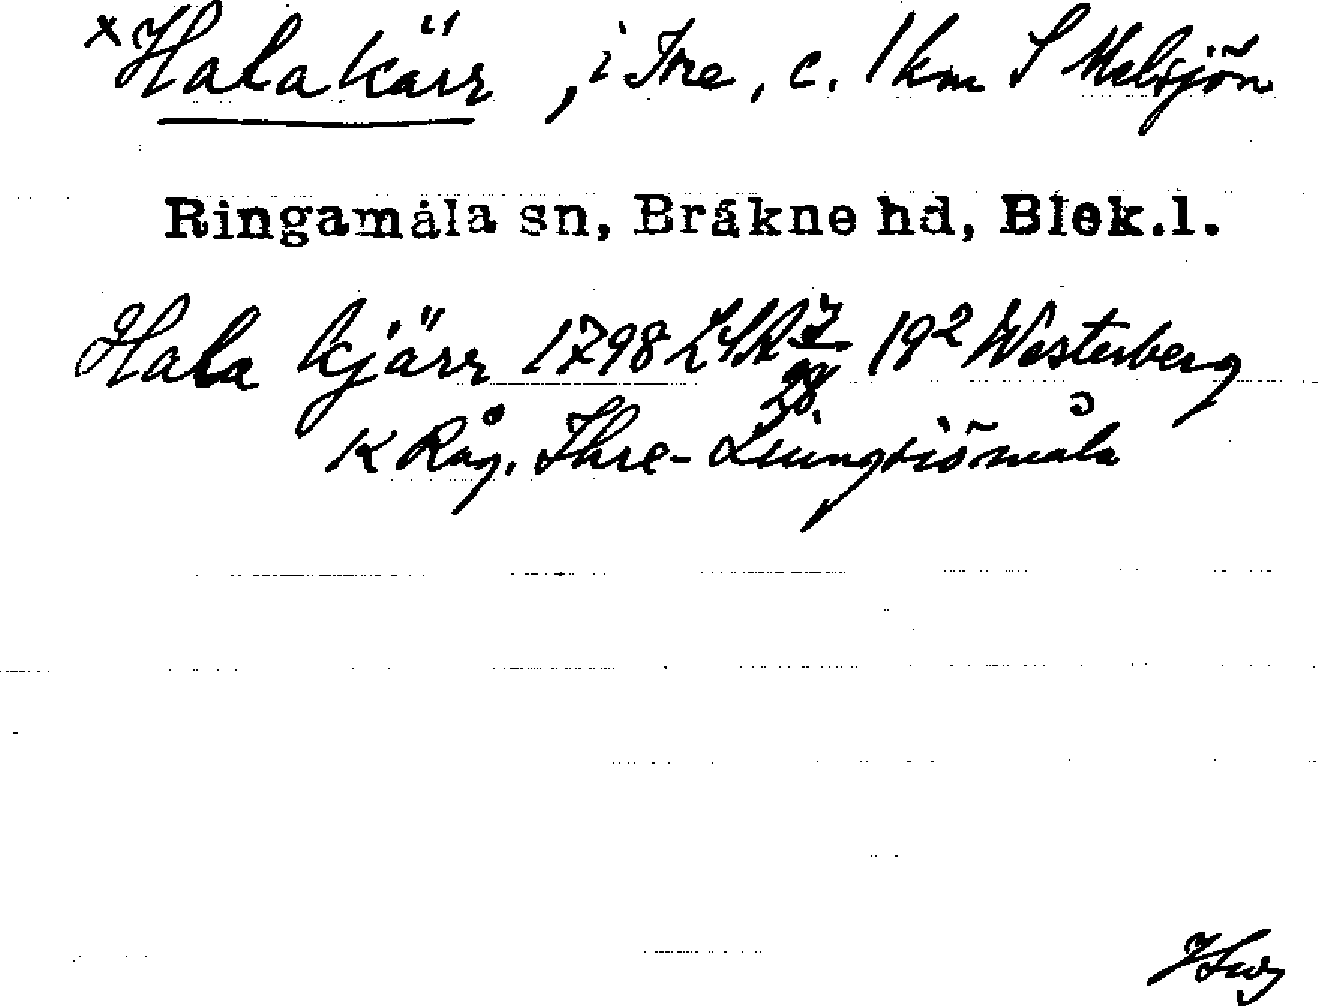 x Halakärr, i Ire, c. 1 km S Melsjön
Ringamåla sn, Bräkne hd, Blek.l.
Hala kjärr 1798 LSA 19² Westerberg
K Råg. Ihre-Liungsiömåla